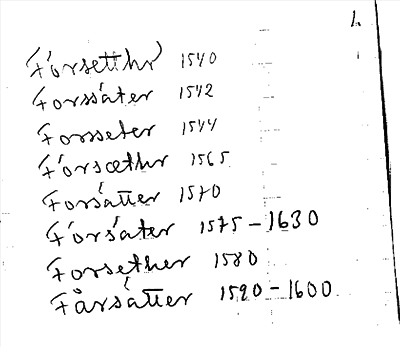 Forsetthr 1540
Forssáter 1542
Forsseter 1544
Forsæther 1565
Forsátter 1570
Forsáter 1575-1630
Forsether 1580
Fårsátter 1590-1600